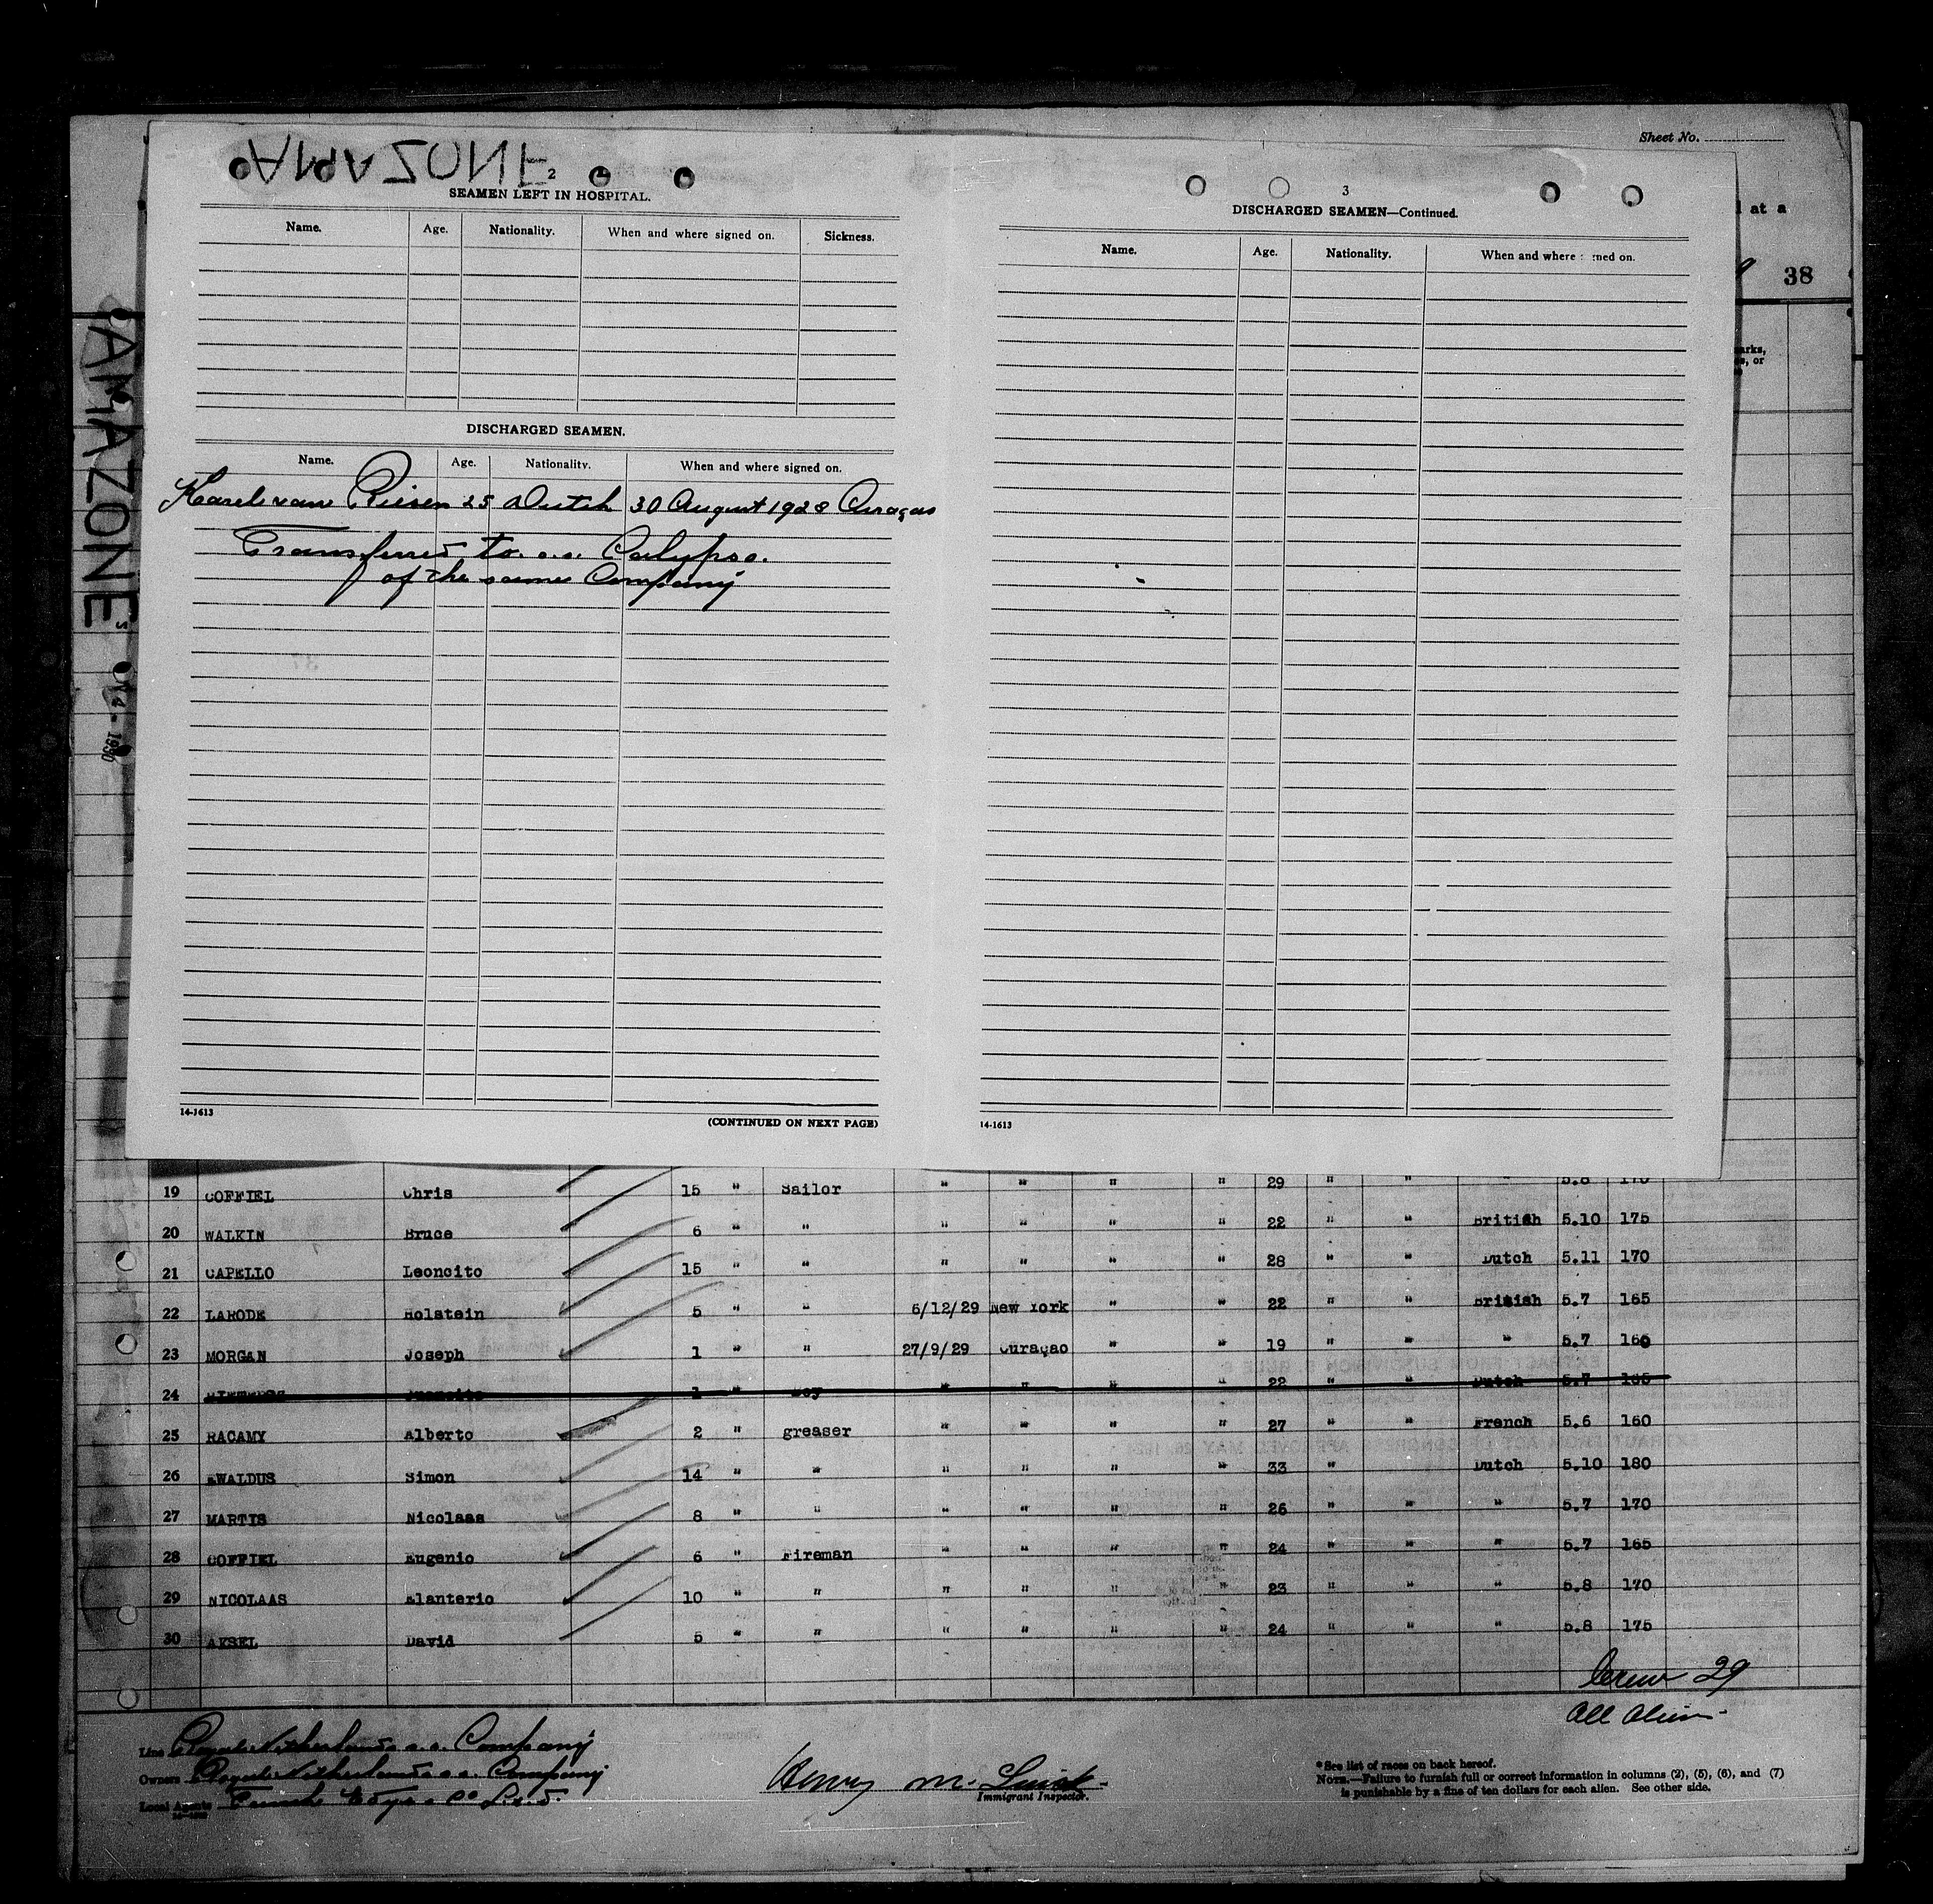 Sheet No.
AMAZONE
2
SEAMEN LEFT IN HOSPITAL.
Name. Age. Nationality. When and where signed on. Sickness.
DISCHARGED SEAMEN.
Name. Age. Nationality. When and where signed on.
Karel van Riesen 25 Dutch 30 August 1928 Curaçao
Transferred to s.s. Calypso.
of the same Company
14-1613
(CONTINUED ON NEXT PAGE)
3
DISCHARGED SEAMEN—Continued.
Name. Age. Nationality. When and where ned on.
14-1613
at a
38
arks,
s, or
AMAZONE
1930
19 COFFIEL Chris 15 " Sailor " " " " 29 " " " 5.8 170
20 WALKIN Bruce 6 " " " " " " 22 " " British 5.10 175
21 CAPELLO Leoncito 15 " " " " " " 28 " " Dutch 5.11 170
22 LARODE Holstein 5 " " 6/12/29 New York " " 22 " " British 5.7 165
23 MORGAN Joseph 1 " " 27/9/29 Curaçao " " 19 " " " 5.7 160
24 1 " Boy " " " 22 " " Dutch 5.7 165
25 RACAMY Alberto 2 " greaser " " " " 27 " " French 5.6 160
26 EWALDUS Simon 14 " " " " " " 33 " Dutch 5.10 180
27 MARTIS Nicolaas 8 " " " " " " 26 " " " 5.7 170
28 COFFIEL Eugenio 6 " Fireman " " " " 24 " " " 5.7 165
29 NICOLAAS Elanterio 10 " " " " " " 23 " " " 5.8 170
30 David 5 " " " " " " 24 " " " 5.8 175
Crew 29
All Aliens
Line Royal Netherlands s.s. Company
Owners Royal Netherlands s.s. Company
Local Agents Funch Edye & Co Ltd.
Henry M.
Immigrant Inspector.
*See list of races on back hereof.
NOTE.—Failure to furnish full or correct information in columns (2), (5), (6), and (7)
is punishable by a fine of ten dollars for each alien. See other side.